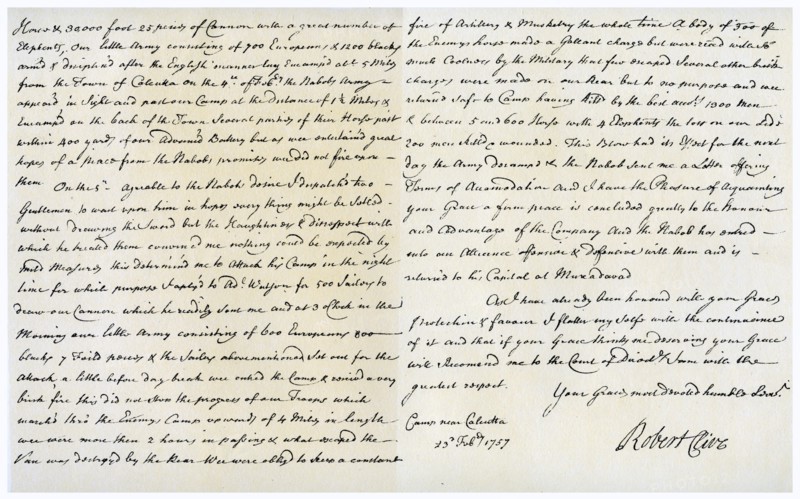 Horse & 30000 foot 25 peices of Cannon with a great number of
Elephents, Our little Army consisting of 700 Europeans & 1200 blacks
arm'd & disciplin'd after the English manner lay Encamp'd abt. 5 Miles
from the Town of Calcutta on the 4th. of Feb. the Nabobs Army
appeard in Sight and past our Camp at the distance of 1½ Miles &
Encamp'd on the back of the Town Several parties of their Horse past
within 400 yards of our Advanced Battery but as wee entertaind great
hopes of a peace from the Nabobs promises wee did not fire upon
them
On the 5th- agreable to the Nabobs desire I dispatch'd two
Gentlemen to wait upon him in hopes every thing might be Setled
without drawing the Sword but the Haughtiness & disrespect with
which he treated them convinced me nothing could be expected by
mild Measures this determin'd me to attack his Camp in the night
time for which purpose I aply'd to Adl. Watson for 500 Sailors to
draw our Cannon which he readily sent me and at 3 oClock in the
Morning our little Army consisting of 600 Europeans 800
blacks 7 Feild peices & the Sailors abovementioned Set out for the
attack a little before day break wee entred the Camp & receivd a very
brisk fire this did not stop the progress of our Troops which
march'd thro' the Enemys Camp upwards of 4 Miles in length
wee were more then 2 hours in passing & what escaped the
Van was destroyd by the Rear Wee were obliged to keep a constant
fire of Artillery & Musketry the whole time A body of 300 of
the Enemys horse made a Gallant charge but were receivd with so
much Coolness by the Military that few escaped Several other brisk
charges were made on our Rear but to no purpose and wee
returnd Safe to Camp having killd by the best acct. 1300 Men
& between 5 and 600 Horse with 4 Elephents the loss on our Side
200 men killd & wounded. This Blow had its Effect for the next
day the Army decamp'd & the Nabob sent me a Letter offering
Terms of Accomodation And I have the Pleasure of Acquainting
your Grace a firm peace is concluded greatly to the Honour
and Advantage of the Company And the Nabob has entred
into an Alleience offensive & defensive with them and is
returned to his Capital at Muxadavad
As I have already been honourd with your Graces
Protection & favour I flatter my Selfe with the continuance
of it and that if your Grace thinks me deserving your Grace
will Recomend me to the Court of Directrs. I am with the
greatest respect.
Your Graces most devoted humble Servt.
Camp near Calcutta
23d Febry 1757
Robert Clive